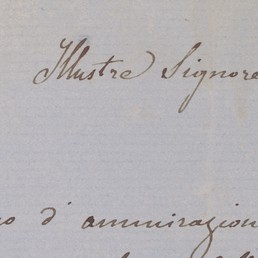 Illustre Signore
d'ammirazion